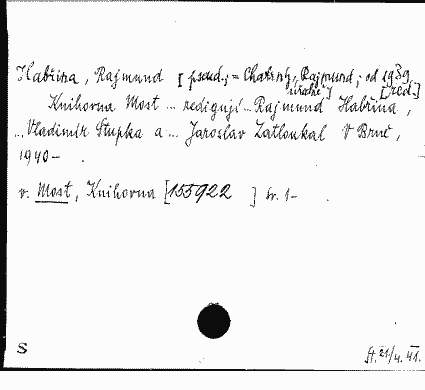 Habřina, Rajmund [pseud.; = Chatrný, Rajmund; od 1939
úředně] [red.]
Knihovna Most ... redigují ... Rajmund Habřina,
... Vladimír Stupka a ... Jaroslav Zatloukal V Brně,
1940-
v. Most, Knihovna [155922 ] sv. 1-
S
H. 21/4. 41.